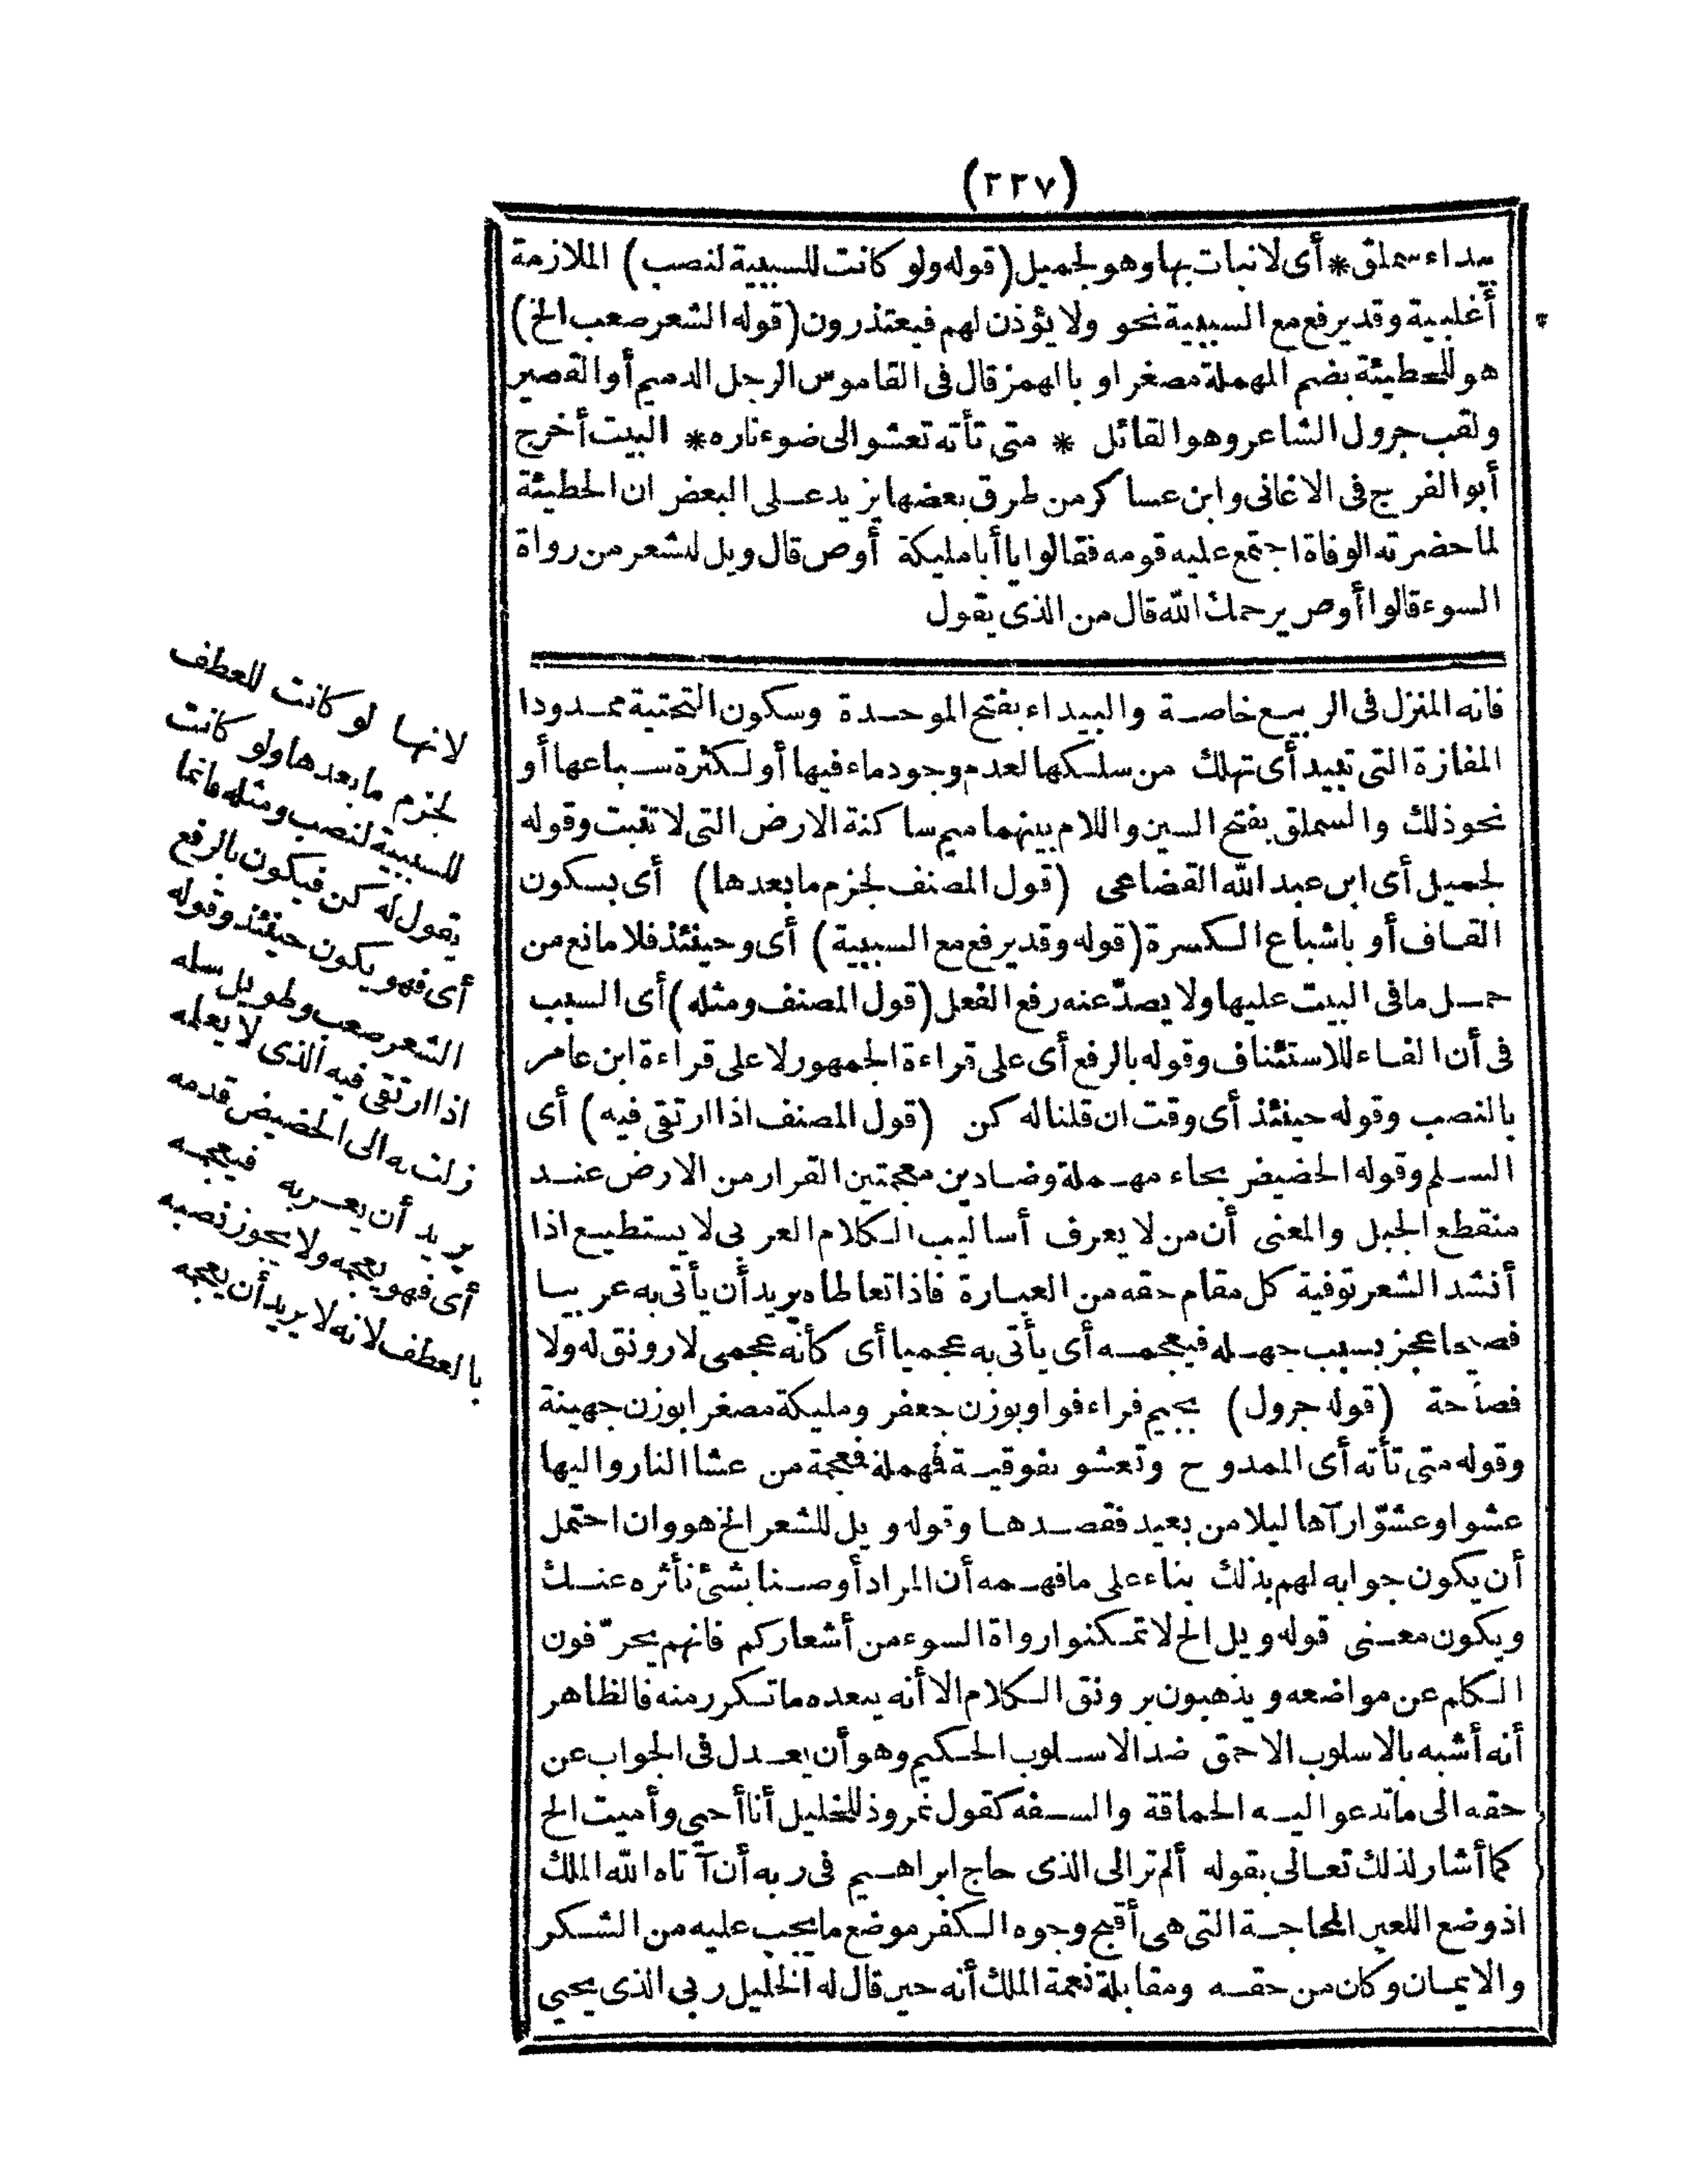 (٣٣٧)
بيداء سملق * أى لا نبات بها وهو لجميل (قوله ولو كانت للسببية لنصب) الملازمة
أغلبية وقد يرفع مع السببية نحو ولا يؤذن لهم فيعتذرون (قوله الشعر صعب الخ)
هو للحطيئة بضم المهملة مصغرا و بالهمز قال فى القاموس الرجل الدميم أو القصير
ولقب جرول الشاعر وهو القائل * متى تأته تعشو الى ضوء ناره * البيت أخرج
أبو الفرج فى الاغانى وابن عساكر من طرق بعضها يزيد على البعض ان الحطيئة
لما حضرته الوفاة اجتمع عليه قومه فقالوا يا أبا مليكة أوص قال ويل للشعر من رواة
السوء قالوا أوص يرحمك الله قال من الذى يقول
فانه المنزل فى الربيع خاصة والبيداء بفتح الموحدة وسكون التحتية ممدودا
المفازة التى تبيد أى تهلك من سلكها لعدم وجود ماء فيها أو لكثرة سباعها أو
نحو ذلك والسملق بفتح السين واللام بينهما ميم ساكنة الارض التى لا تنبت وقوله
لجميل أى ابن عبد الله القضاعى (قول المصنف لجزم ما بعدها) أى بسكون
القاف أو باشباع الكسرة (قوله وقد يرفع مع السببية) أى وحينئذ فلا مانع من
حمل ما فى البيت عليها ولا يصدّ عنه رفع الفعل (قول المصنف ومثله) أى السبب
فى أن الفاء للاستئناف وقوله بالرفع أى على قراءة الجمهور لا على قراءة ابن عامر
بالنصب وقوله حينئذ أى وقت ان قلنا له كن (قول المصنف اذا ارتقى فيه) أى
السلم وقوله الحضيض بحاء مهملة وضادين معجمتين القرار من الارض عند
منقطع الجبل والمعنى أن من لا يعرف أساليب الكلام العربى لا يستطيع اذا
أنشد الشعر توفية كل مقام حقه من العبارة فاذا تعاطاه يريد أن يأتى به عربيا
فصيحا عجز بسبب جهله فيعجمه أى يأتى به عجميا أى كأنه عجمى لا رونق له ولا
فصاحة (قوله جرول) بجيم فراء فواو بوزن جعفر ومليكة مصغرا بوزن جهينة
وقوله متى تأته أى الممدوح وتعشو بفوقية فمهملة فمعجمة من عشا النار واليها
عشوا وعشوّا رآها ليلا من بعيد فقصدها وقوله ويل للشعر الخ هو وان احتمل
أن يكون جوابه لهم بذلك بناء على ما فهمه أن المراد أوصنا بشئ نأثره عنك
ويكون معنى قوله ويل الخ لا تمكنوا رواة السوء من أشعاركم فانهم يحرّفون
الكلم عن مواضعه ويذهبون برونق الكلام الا أنه يبعده ما تكرر منه فالظاهر
أنه أشبه بالاسلوب الاحمق ضد الاسلوب الحكيم وهو أن يعدل فى الجواب عن
حقه الى ما تدعو اليه الحماقة والسفه كقول نمروذ للخليل أنا أحيى وأميت الخ
كما أشار لذلك تعالى بقوله ألم تر الى الذى حاج ابراهيم فى ربه أن آتاه الله الملك
اذ وضع اللعين المحاجة التى هى أقبح وجوه الكفر موضع ما يجب عليه من الشكر
والايمان وكان من حقه ومقابلة نعمة الملك أنه حين قال له الخليل ربى الذى يحيى
لانها لو كانت للعطف
لجزم ما بعدها ولو كانت
للسببية لنصب ومثله فانما
يقول له كن فيكون بالرفع
أى فهو يكون حينئذ وقوله
الشعر صعب وطويل سلمه
اذا ارتقى فيه الذى لا يعلمه
زلت به الى الحضيض قدمه
يريد أن يعربه فيعجمه
أى فهو يعجمه ولا يجوز نصبه
بالعطف لانه لا يريد أن يعجمه